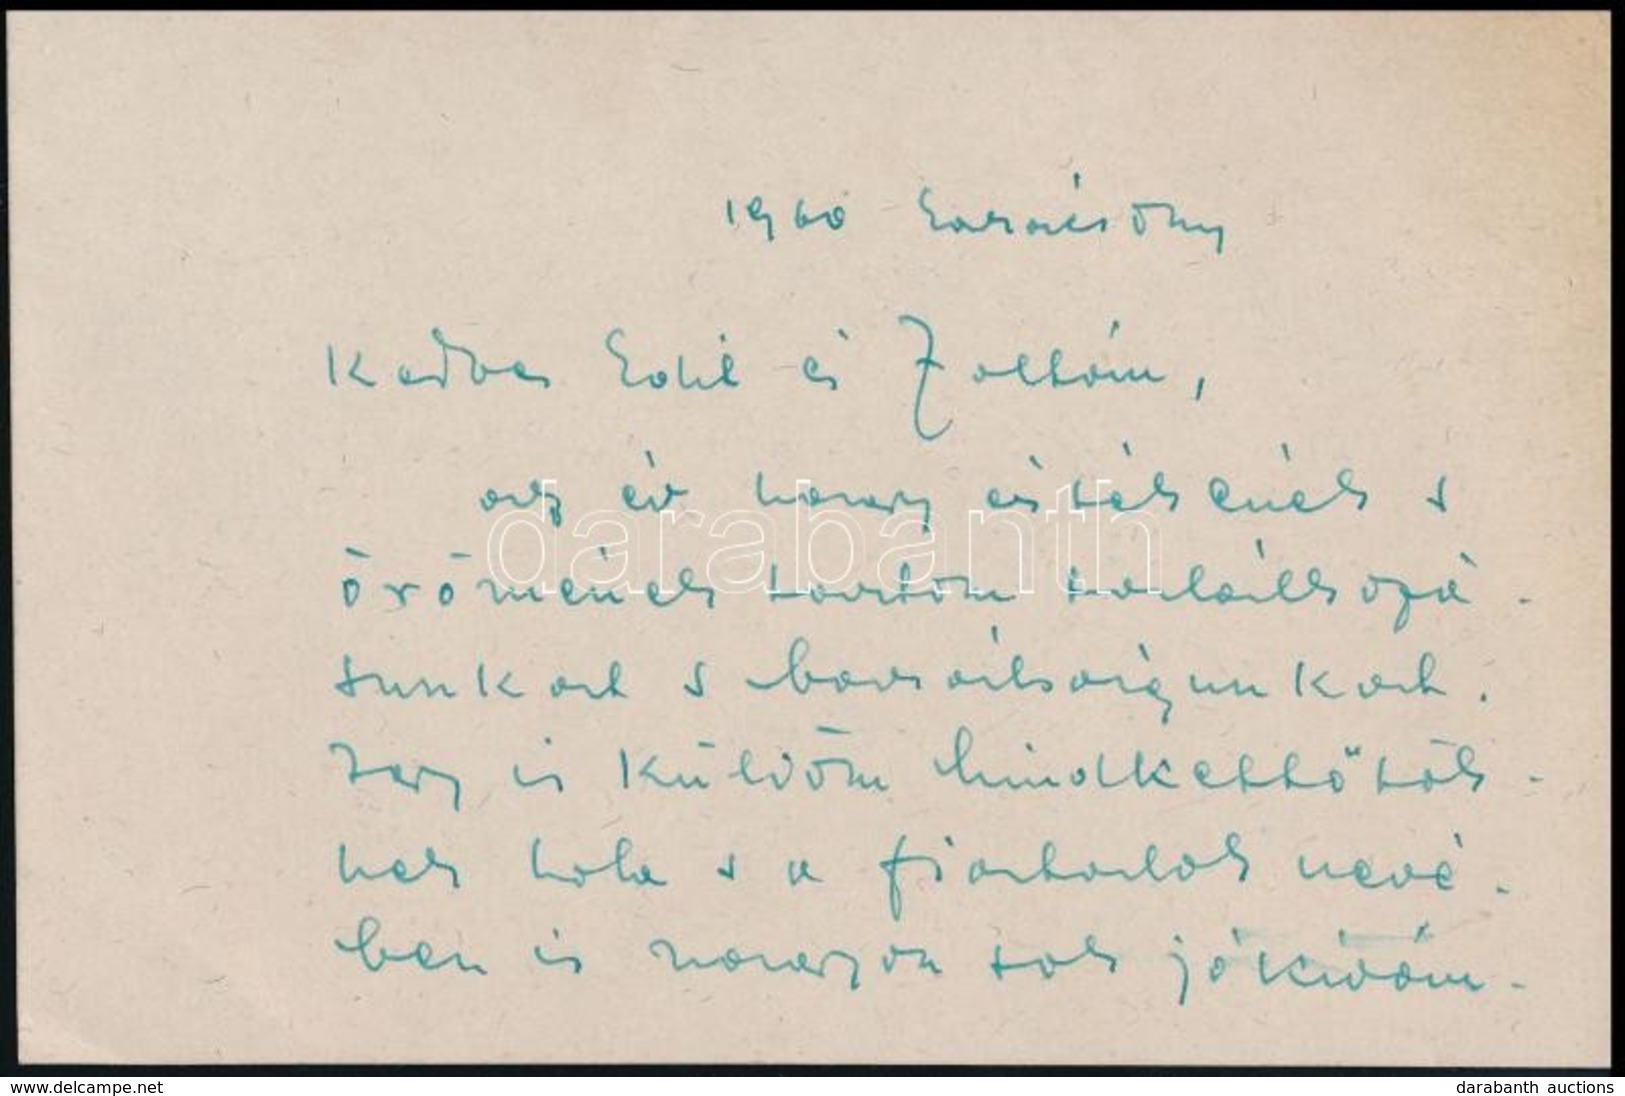 1960 Karácsony
Kedves Edit és Zoltán,
az év nagy értékének s
örömének tartom találkozá-
sunkat s barátságunkat.
Igy is küldöm mindkettőtök-
nek s a fiatalok nevé-
ben is nagyon sok jókíván-
darabanth
www.delcampe.net
darabanth auctions